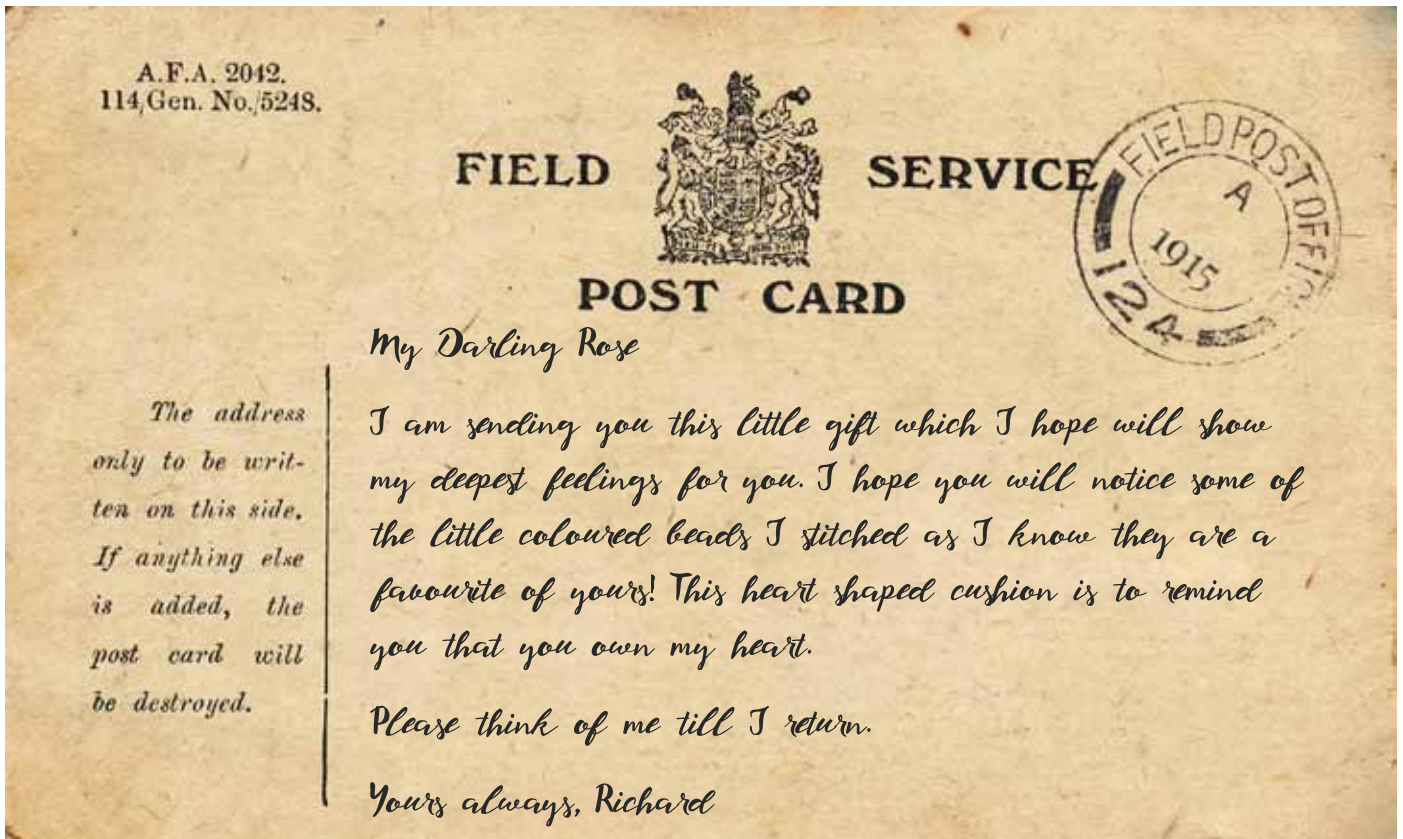 A.F.A. 2042.
114/Gen. No./5248.
FIELD SERVICE
POST CARD
FIELD POST OFFICE
A
1915
124
The address
only to be writ-
ten on this side.
If anything else
is added, the
post card will
be destroyed.
My Darling Rose
I am sending you this little gift which I hope will show
my deepest feelings for you. I hope you will notice some of
the little coloured beads I stitched as I know they are a
favourite of yours! This heart shaped cushion is to remind
you that you own my heart.
Please think of me till I return.
Yours always, Richard